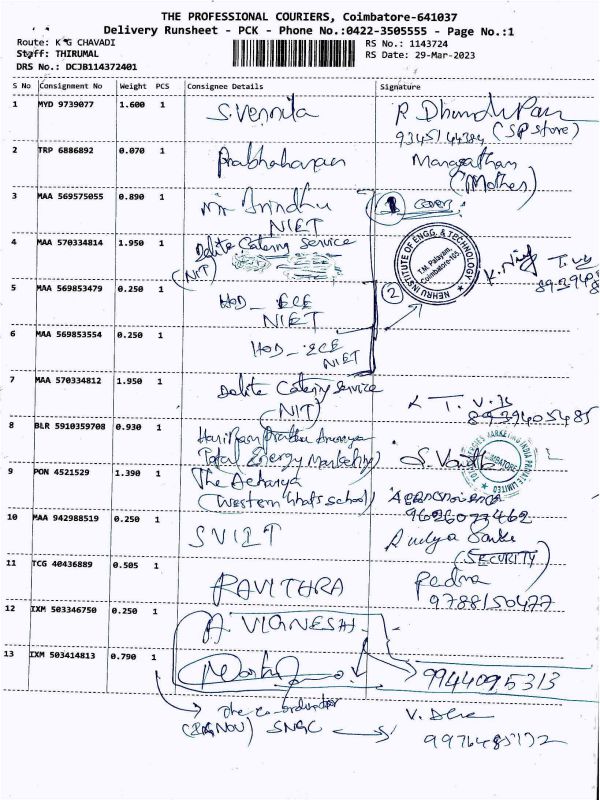 THE PROFESSIONAL COURIERS, Coimbatore-641037
Delivery Runsheet - PCK - Phone No.:0422-3505555 - Page No.:1
Route: K G CHAVADI
Staff: THIRUMAL
DRS No.: DCJB114372401
RS No.: 1143724
RS Date: 29-Mar-2023
S No Consignment No Weight PCS Consignee Details Signature
1 MYD 9739077 1.600 1 S. Vennila
(SP Store)
2 TRP 6886892 0.070 1 Prabhaharan
(Mother)
3 MAA 569575055 0.890 1 Mr Anindhu
NIET
1 cover
4 MAA 570334814 1.950 1 Delite Catering Service
(NIT)
NEHRU INSTITUTE OF ENGG. & TECHNOLOGY
T.M. Palayam,
Coimbatore-105.
5 MAA 569853479 0.250 1 HOD_ ECE
NIET
2
6 MAA 569853554 0.250 1 HOD_ ECE
NIET
7 MAA 570334812 1.950 1 Delite Catering Service
(NIT)
8939405485
8 BLR 5910359708 0.930 1
(Total Energy Marketing)
9 PON 4521529 1.390 1 The Acharya
(Western Ghats School)
9626073462
10 MAA 942988519 0.250 1 SVIET
(SECURITY)
11 TCG 40436889 0.505 1 PAVITHRA
Padma
9788150477
12 IXM 503346750 0.250 1 A. VIGNESH
13 IXM 503414813 0.790 1
9944095313
The co-ordinator
(IGNOU) SNGC